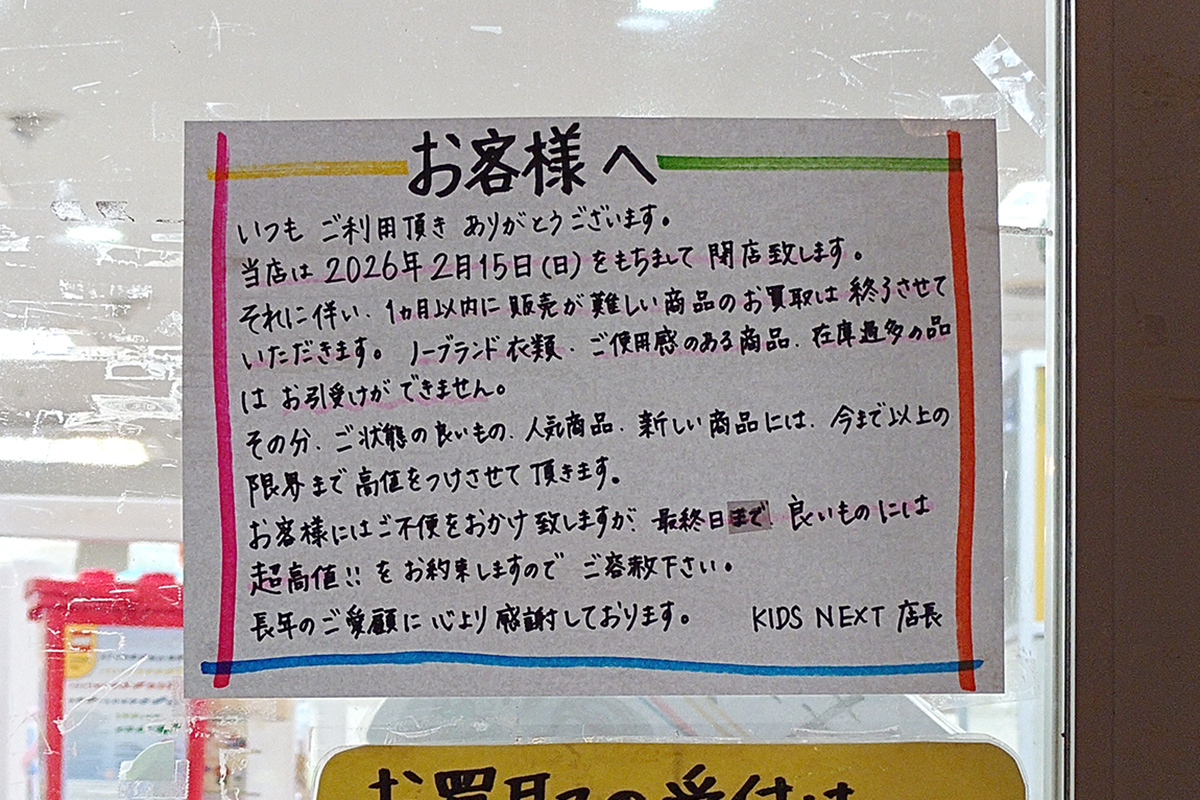 お客様へ
いつも ご利用頂き ありがとうございます。
当店は 2026年2月15日(日)をもちまして 閉店致します。
それに伴い、1ヵ月以内に 販売が難しい商品のお買取は 終了させて
いただきます。 ノーブランド衣類、ご使用感のある商品、在庫過多の品
は お引受けが できません。
その分、ご状態の良いもの、人気商品、新しい商品には、今まで以上の
限界まで 高値をつけさせて 頂きます。
お客様にはご不便をおかけ致しますが、最終日まで 良いものには
超高値!!を お約束しますので ご容赦下さい。
長年のご愛顧に 心より 感謝しております。 KIDS NEXT 店長
お買取の受付は